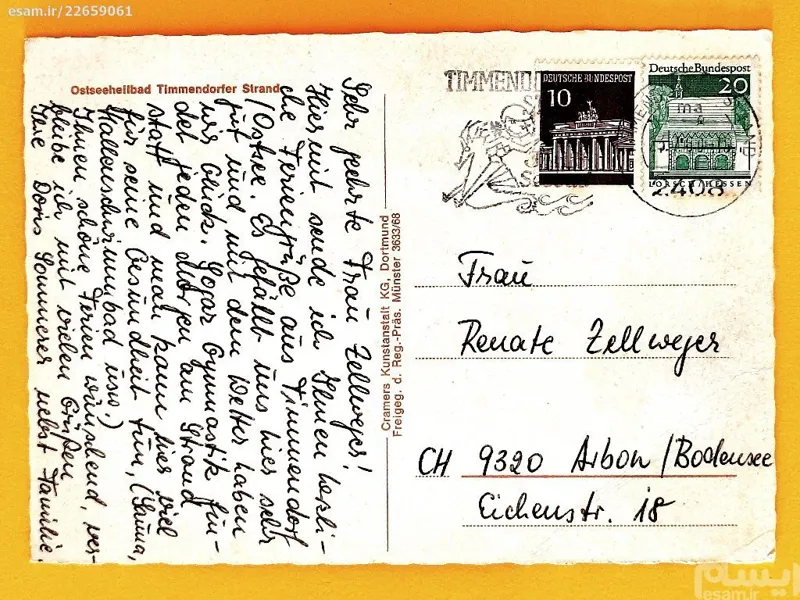 esam.ir/22659061
Ostseeheilbad Timmendorfer Strand
Sehr geehrte Frau Zellweger!
Hiermit sende ich Ihnen herzli-
che Feriengrüße aus Timmendorf
(Ostsee. Es gefällt uns hier sehr
gut und mit dem Wetter haben
wir Glück. Sogar Gymnastik fin-
det jeden Morgen am Strand
statt und man kann hier viel
für seine Gesundheit tun, (Sauna,
Hallenschwimmbad usw.)
Ihnen schöne Ferien wünschend, ver-
bleibe ich mit vielen Grüßen
Ihre Doris Sommerer nebst Familie.
Cramers Kunstanstalt KG, Dortmund
Freigeg. d. Reg.-Präs. Münster 3633/68
TIMMEND
DEUTSCHE BUNDESPOST
10
Deutsche Bundespost
20
LORSCH/HESSEN
ma
2408
Frau
Renate Zellweger
CH 9320 Arbon/Bodensee
Eichenstr. 18
ایسام
esam.ir